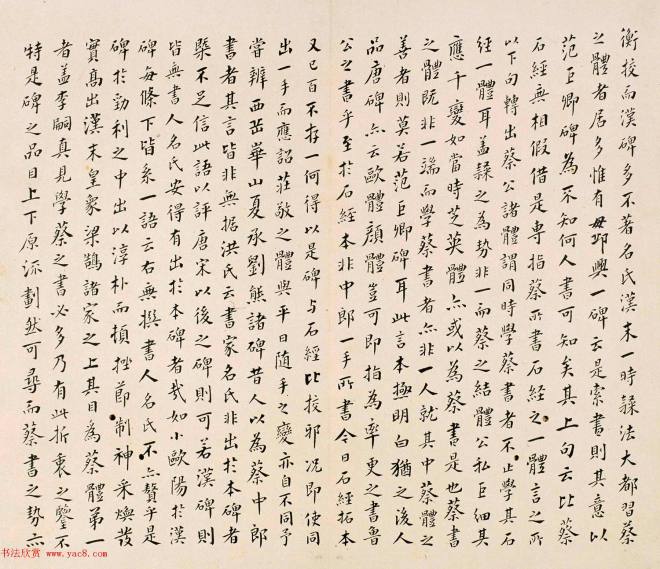 衡挍而漢碑多不著名氏漢末一時隸法大都習蔡
之體者居多惟有毋邱興一碑云是索書則其意以
范巨卿碑為不知何人書可知矣其上句云比蔡
石經無相假借是専指蔡所書石經之一體言之所
以下句轉出蔡公諸體謂同時學蔡書者不止學其石
經一體耳盖隸之為勢非一而蔡之結體公私巨細其
應千變如當時芝英體亦或以為蔡書是也蔡書
之體既非一端而學蔡書者亦非一人就其中蔡體之
善者則莫若范巨卿碑耳此言本極明白猶之後人
品唐碑亦云歐體顏體豈可即指為率更之書魯
公之書乎至於石經本非中郎一手所書今日石經拓本
又已百不存一何得以是碑与石經比挍邪况即使同
出一手而應詔莊敬之體與平日随手之變亦自不同予
嘗辨西岳華山夏承劉熊諸碑昔人以為蔡中郎
書者其言皆非無据洪氏云書家名氏非出於本碑者
槩不足信此語以評唐宋以後之碑則可若漢碑則
皆無書人名氏安得有出於本碑者哉如小歐陽於漢
碑每條下皆系一語云右無撰書人名氏不亦贅乎是
碑於勁利之中出以淳朴而頓挫節制神采煥發
實髙出漢末皇象梁鵠諸家之上其目為蔡體第一
者盖李嗣真見學蔡之書必多乃有此折衷之鑒不
特是碑之品目上下原流劃然可尋而蔡書之勢亦
书法欣赏 www.yac8.com